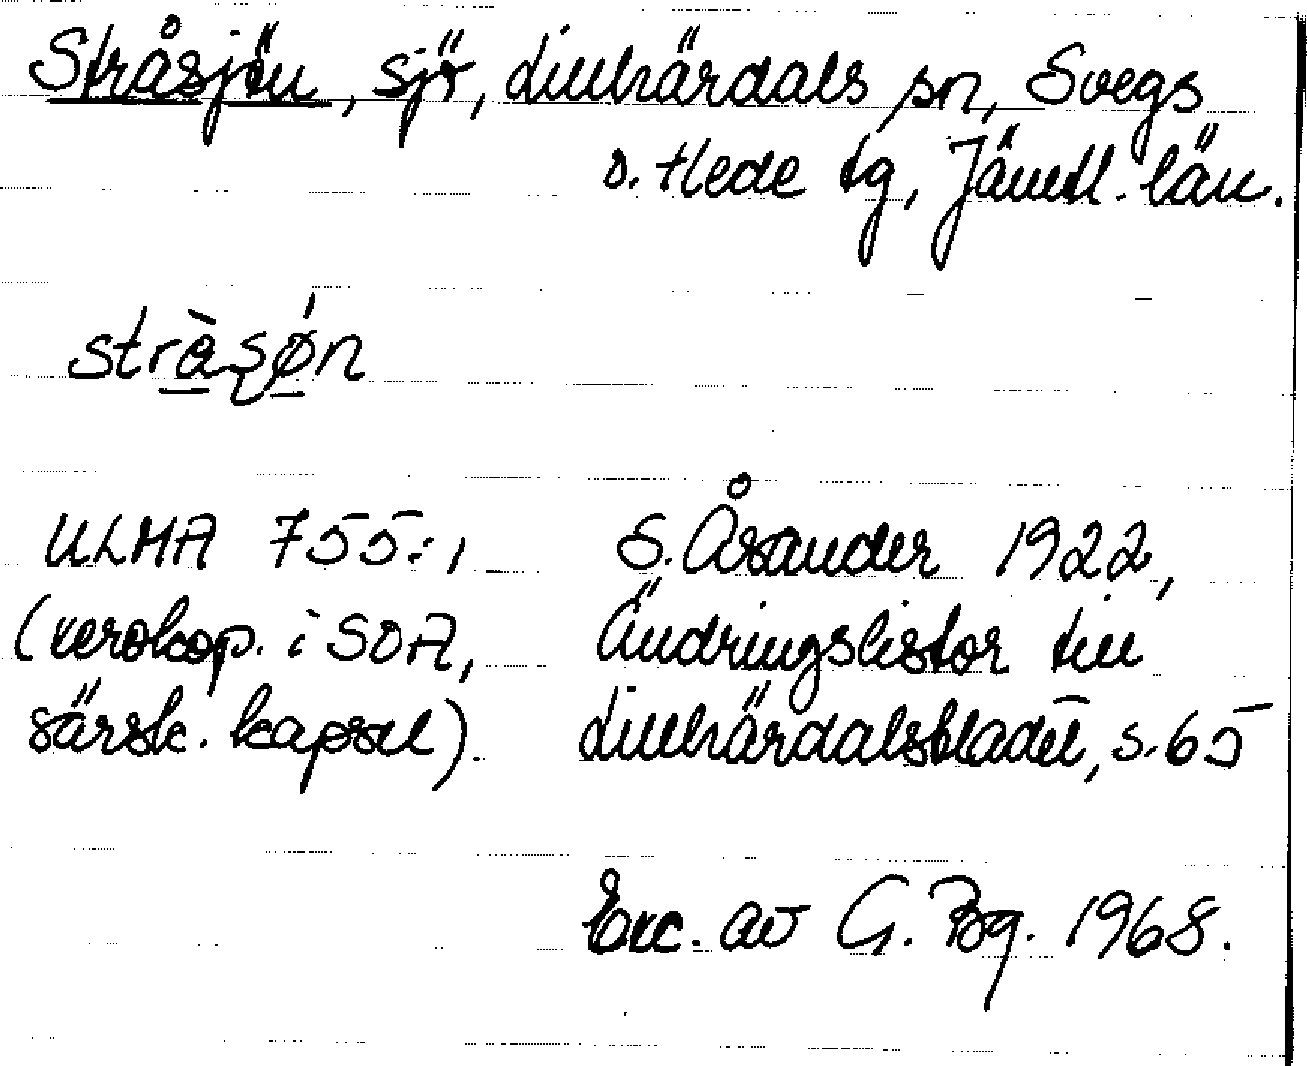 Stråsjön, sjö, Lillhärdals sn, Svegs
o. Hede tg, Jämtl. län.
stràsǿn
ULMA 755:1
(xerokop. i SOA,
särsk. kapsel).
S. Åsander 1922,
Ändringslistor till
Lillhärdalsbladet, s. 65
Exc. av G. Bg. 1968.